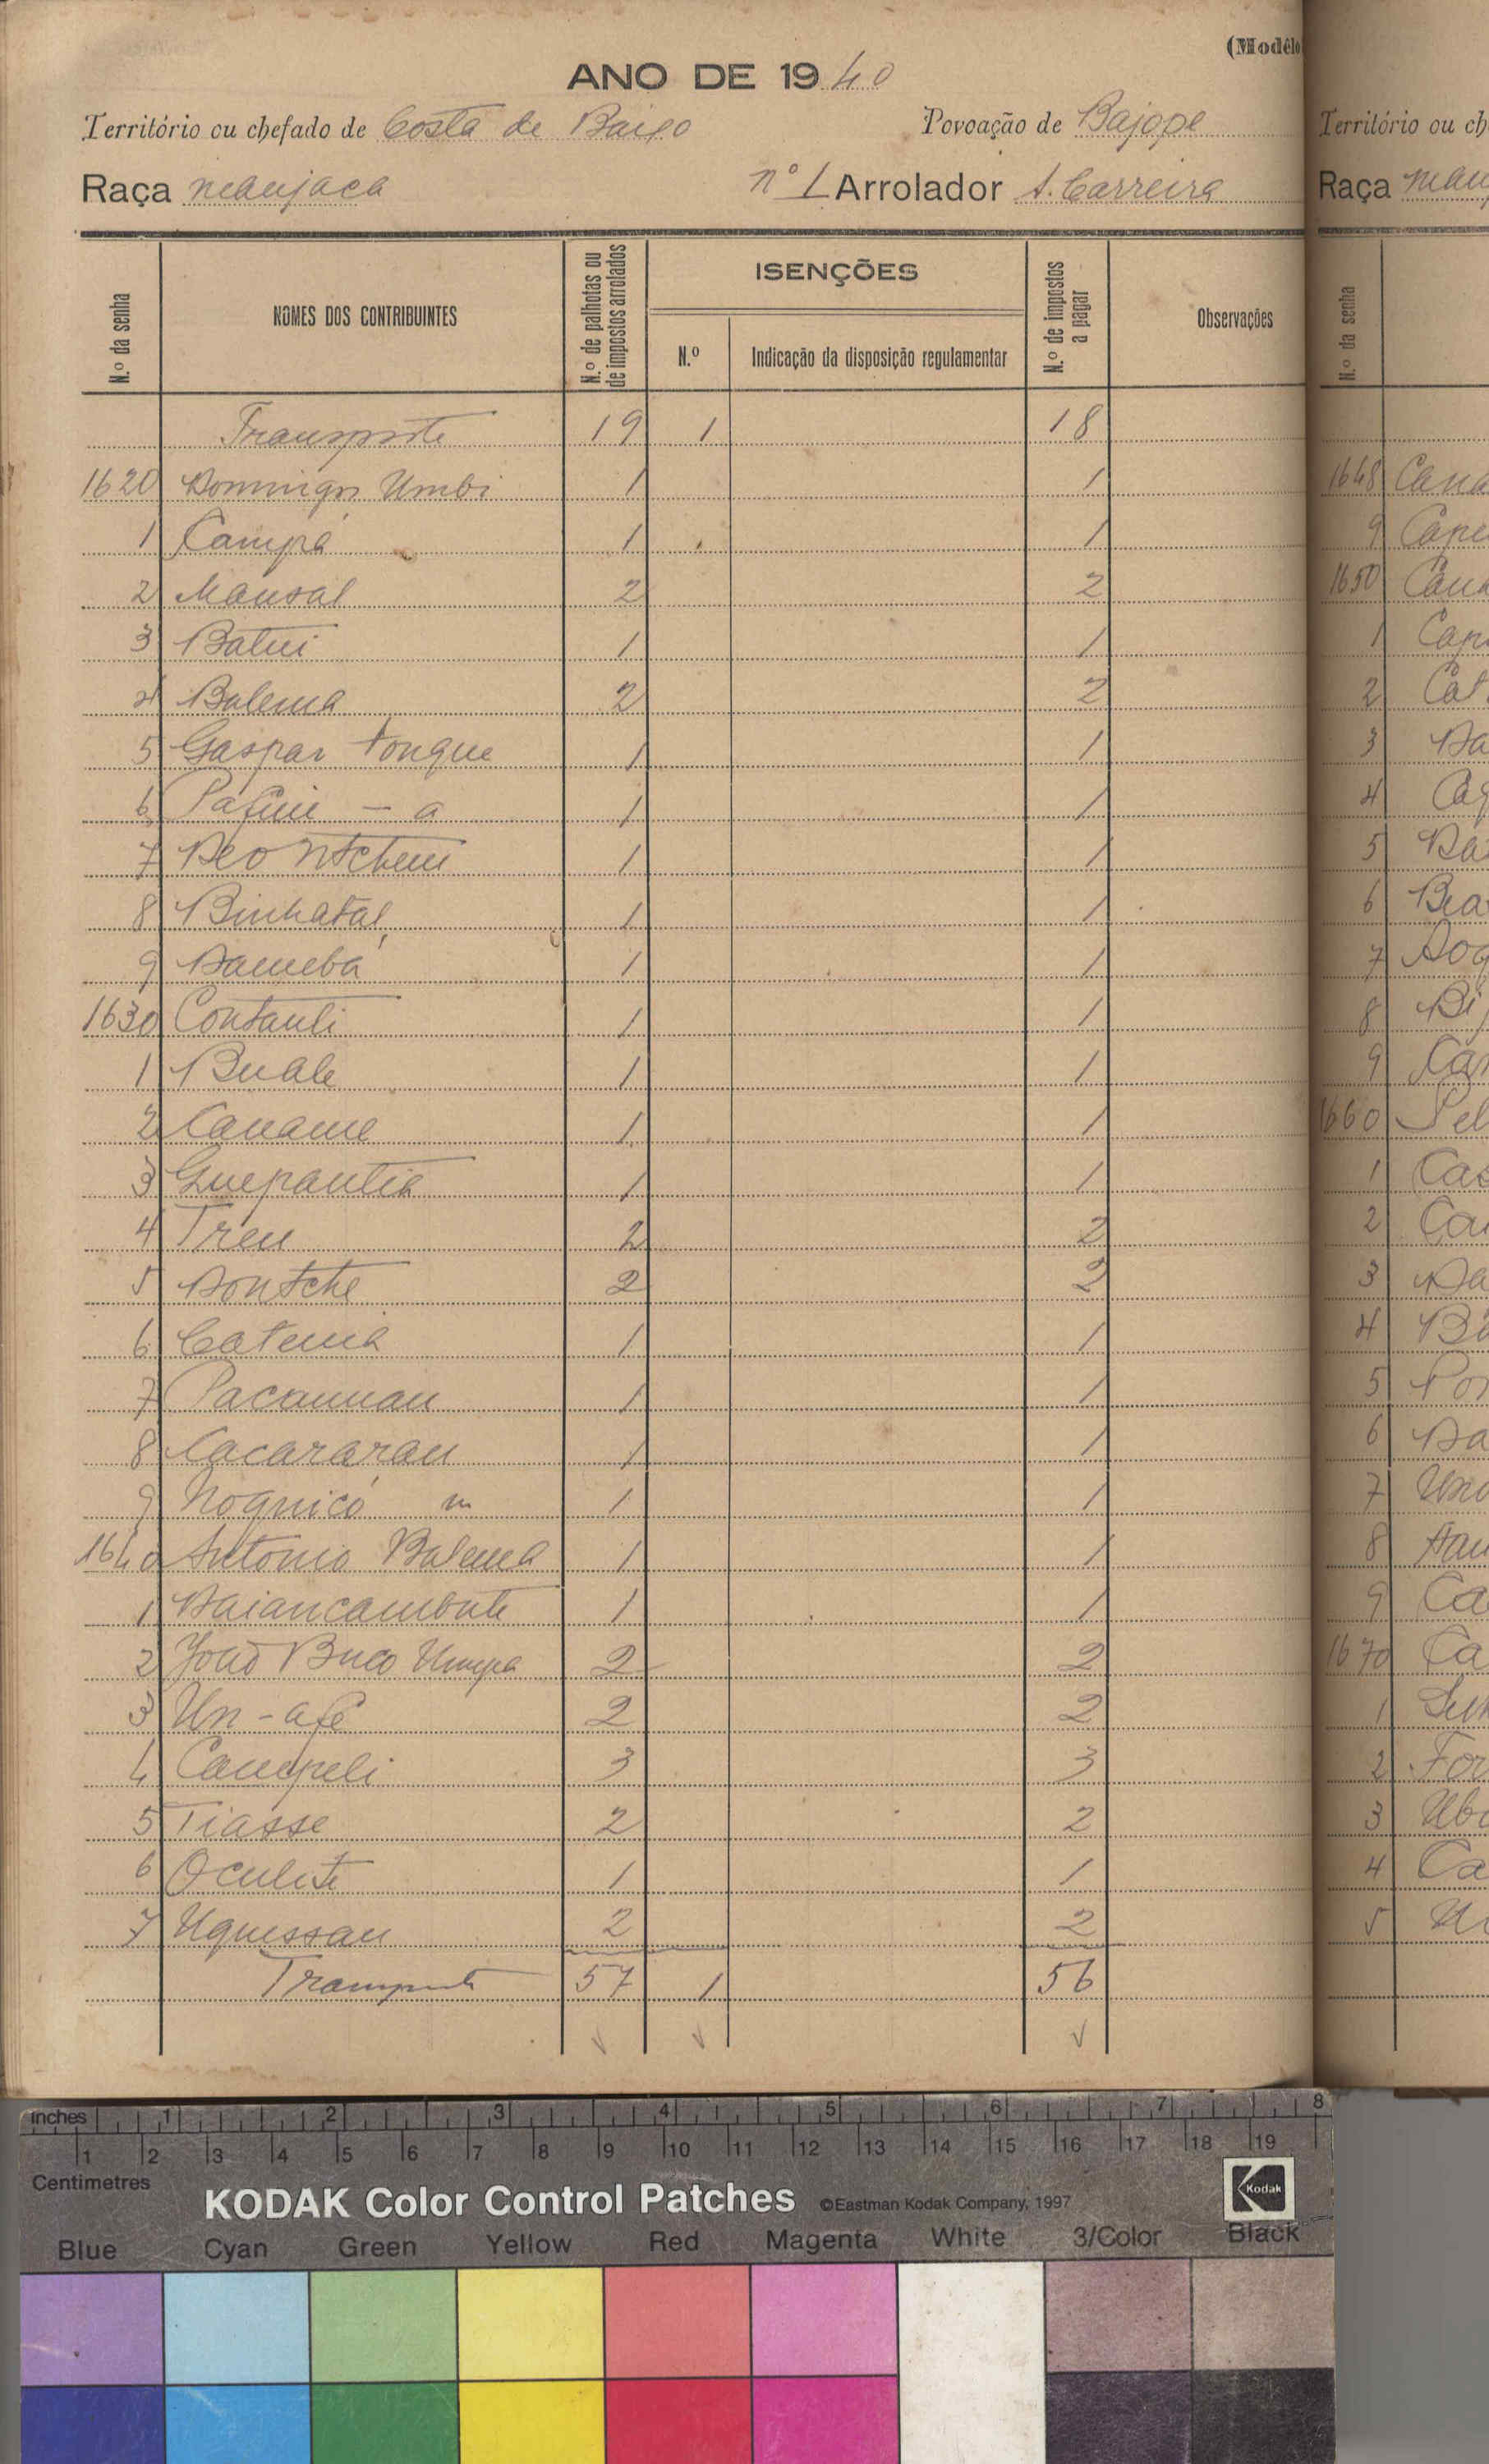 (Modêlo
ANO DE 1940
Território ou chefado de Costa de Baixo Povoação de Bajope
Raça manjaca nº 1 Arrolador A. Carreira
N.º da senha NOMES DOS CONTRIBUINTES N.º de palhotas ou de impostos arrolados ISENÇÕES N.º Indicação da disposição regulamentar N.º de impostos a pagar Observações
Transporte 19 1 18
1620 Domingos Umbi 1 1
1 Campá 1 1
2 Mansal 2 2
3 Batui 1 1
4 Balema 2 2
5 Gaspar Tongue 1 1
6 - a 1 1
7 1 1
8 Binhatal 1 1
9 Damebá 1 1
1630 Contanli 1 1
1 Buale 1 1
2 Caname 1 1
3 Guepantia 1 1
4 Treu 2 2
5 Dontche 2 2
6 Catema 1 1
7 Pacamman 1 1
8 Cacararan 1 1
9 Noguicó m 1 1
1640 Antonio Balema 1 1
1 Daiancambute 1 1
2 João Buco Umpa 2 2
3 Un-afé 2 2
4 Campeli 3 3
5 Tiasse 2 2
6 Oculute 1 1
7 Uquessau 2 2
Transporte 57 1 56
Território ou ch
Raça man
N.º da senha
1648 Cana
9 Cape
1650 Cau
1 Cap
2 Cat
3 Da
4 Ca
5 Ba
6 Bea
7 Dog
8 Bi
9 Ca
1660 Pel
1 Cas
2 Cai
3 Da
4 Bi
5 Por
6 Da
7 Um
8 Hau
9 Ca
1670 Ca
1
2 For
3 Ub
4 Ca
5 U
inches 1 2 3 4 5 6 7 8
1 2 3 4 5 6 7 8 9 10 11 12 13 14 15 16 17 18 19
Centimetres
KODAK Color Control Patches ©Eastman Kodak Company, 1997 Kodak
Blue Cyan Green Yellow Red Magenta White 3/Color Black